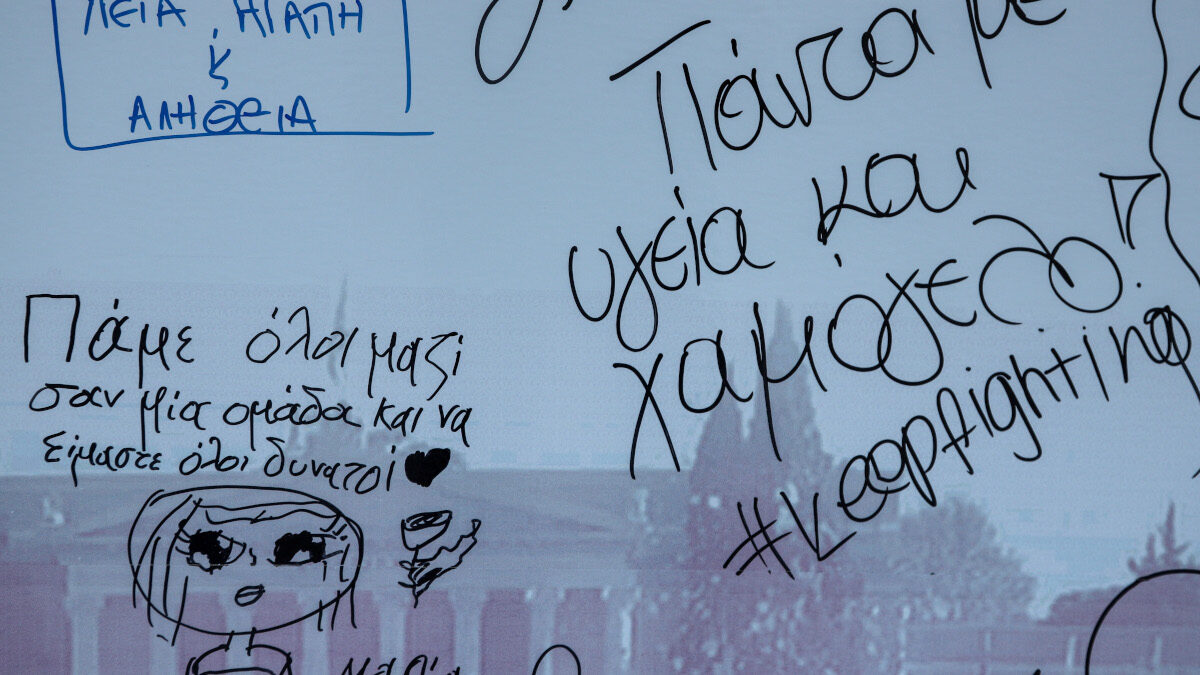 ΑΓΑΠΗ
κ
ΑΛΗΘΕΙΑ
Πάντα με
υγεία και
χαμόγελο!
#keepfighting
Πάμε όλοι μαζί
σαν μία ομάδα και να
είμαστε όλοι δυνατοί